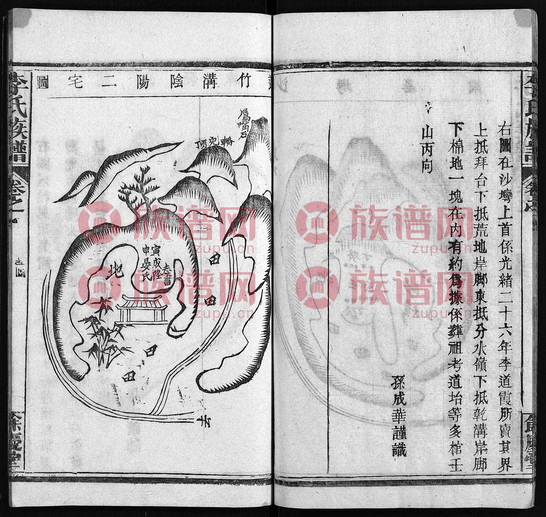 右圖在沙灣上首係光緒二十六年李道霞所賣其界
上抵拜台下抵荒地岸腳東抵分水嶺下抵乾溝岸腳
下棺地一塊在內有約爲據係葬祖考道坮等多棺壬
山丙向
孫成華謹識
李氏族譜
竹溝陰陽二宅圖
李氏族譜
卷之一
地
田
田
田
田
族谱网
zupu.cn
族谱网
zupu.cn
族谱网
zupu.cn
族谱网
zupu.cn